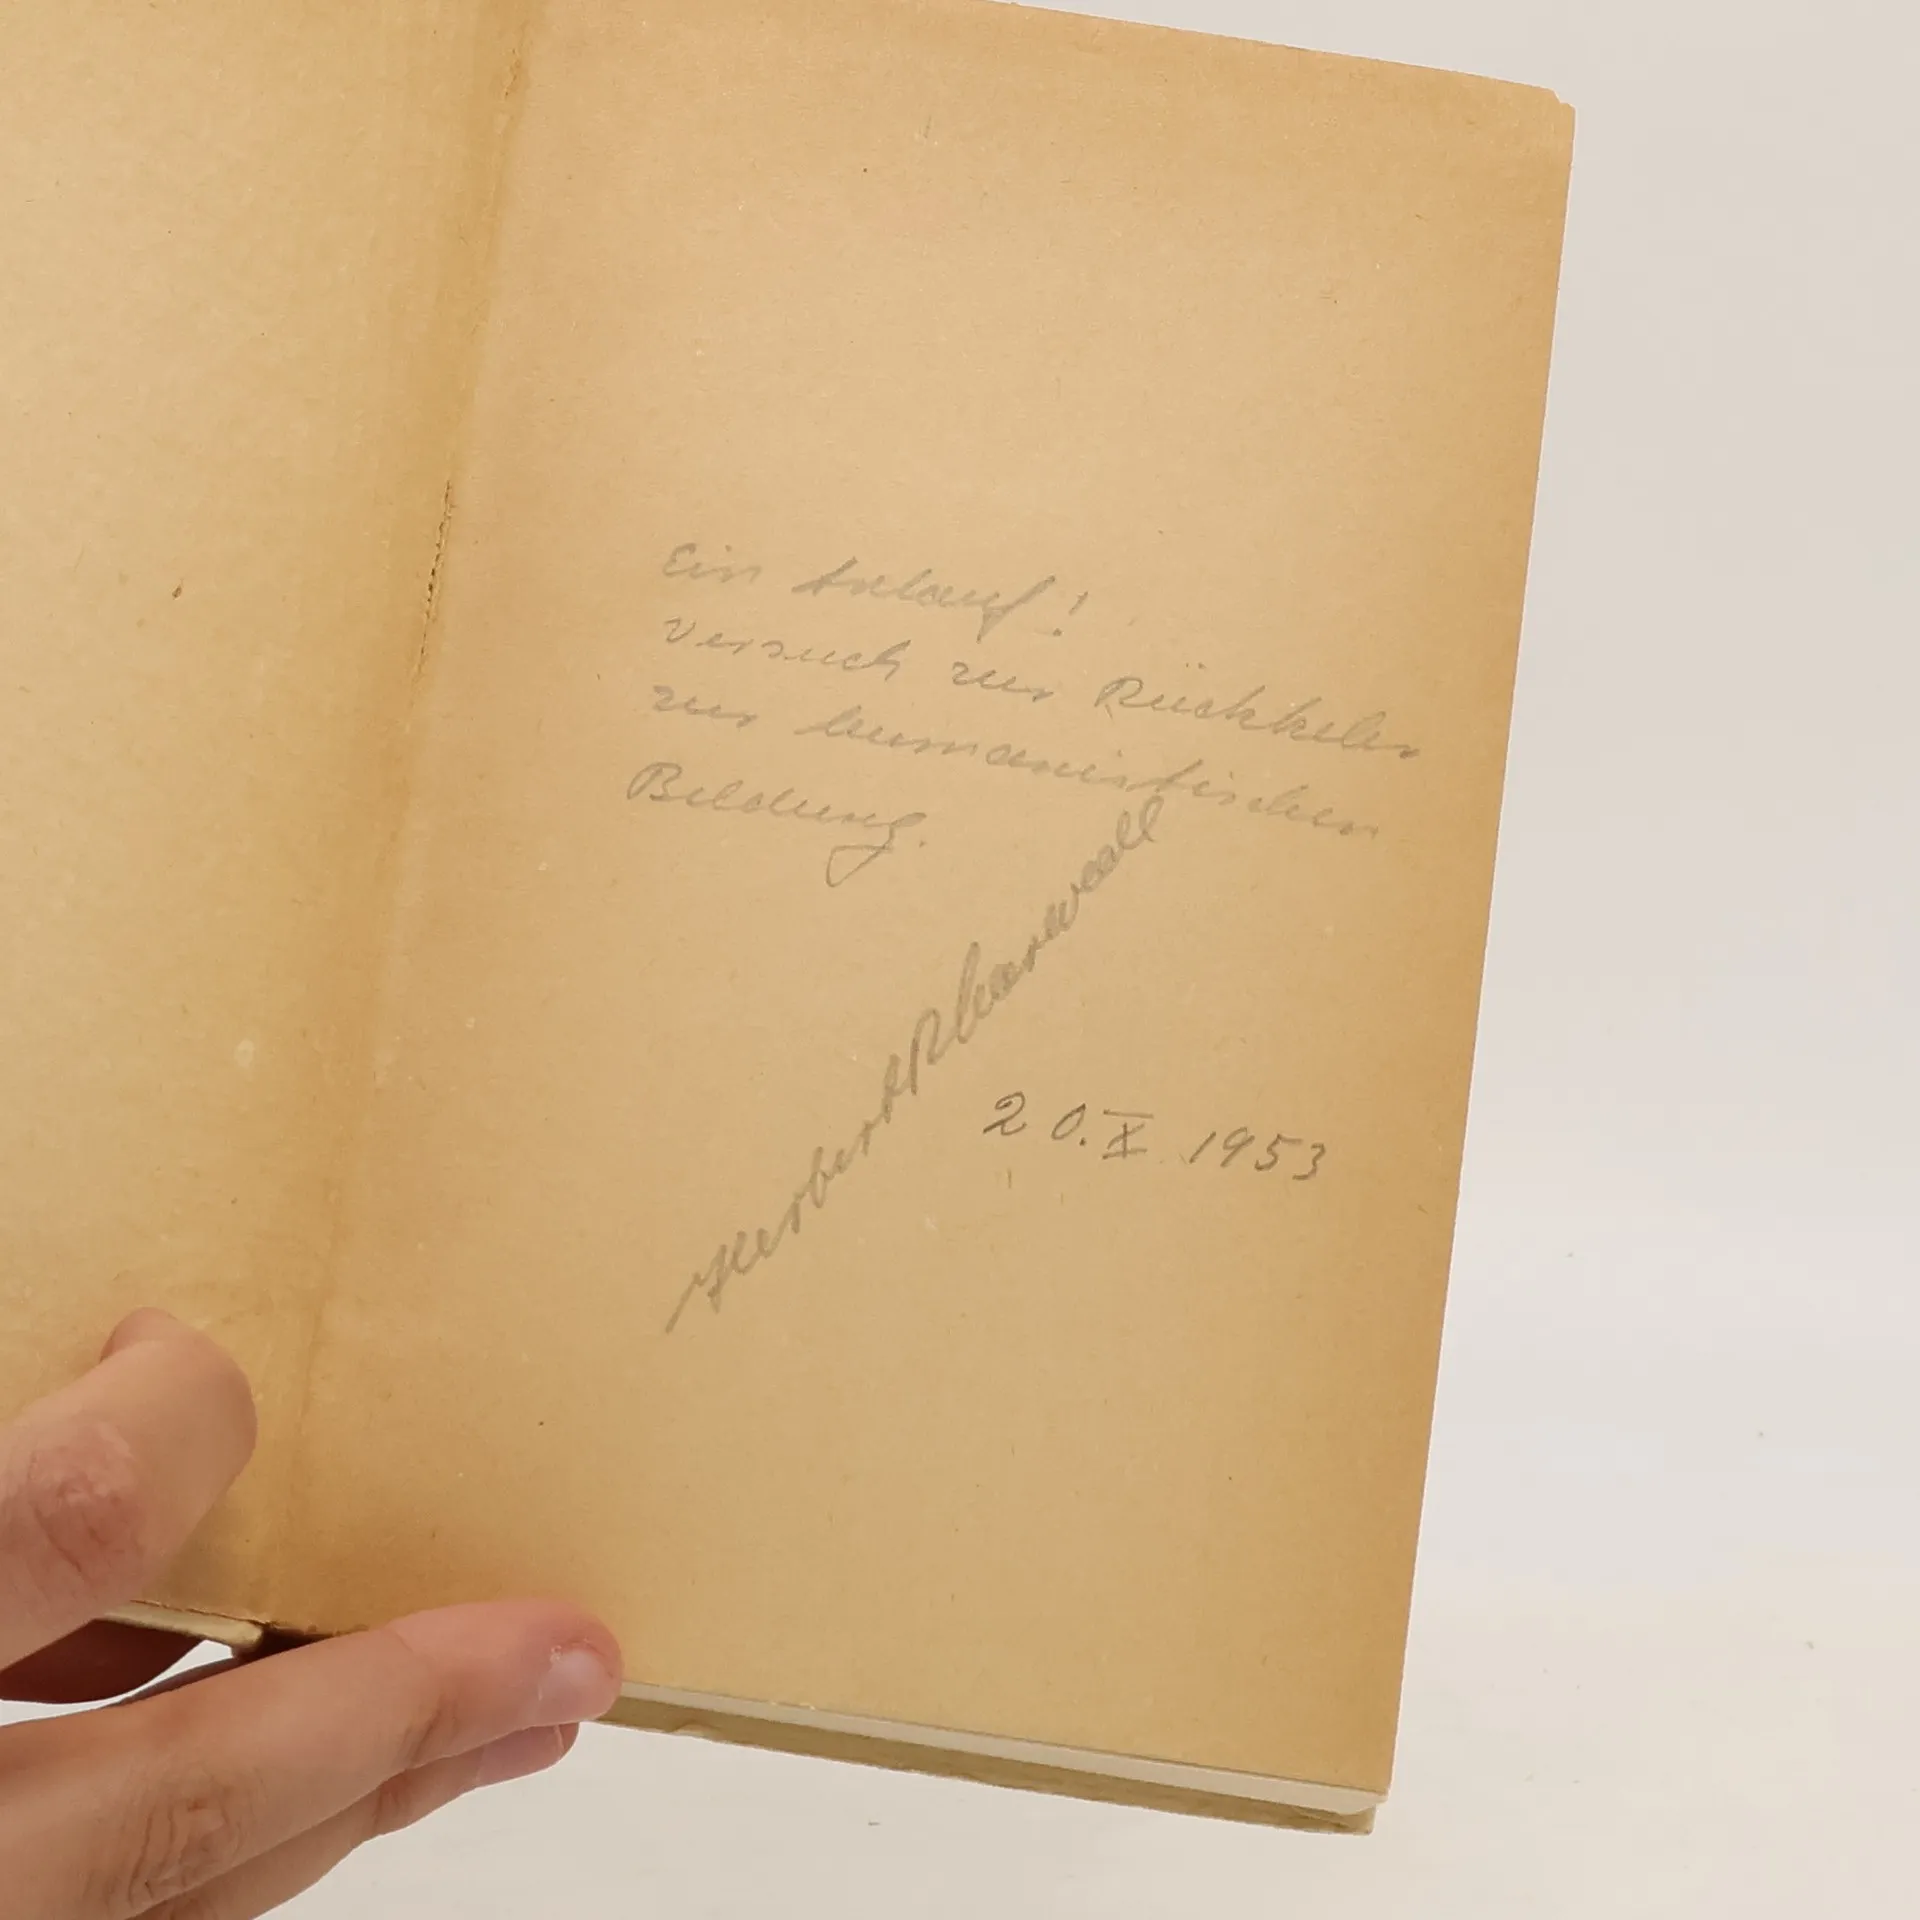 Ein Anlauf!
Versuch zur Rückkehr
zur humanistischen
Bildung.
Herbert
20.X. 1953